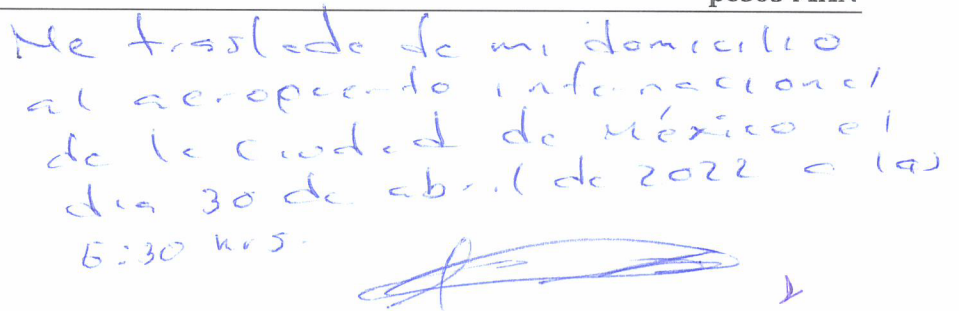 Me traslado de mi domicilio
al aeropuerto internacional
de la Ciudad de México el
día 30 de abril de 2022 a las
:30 hrs.